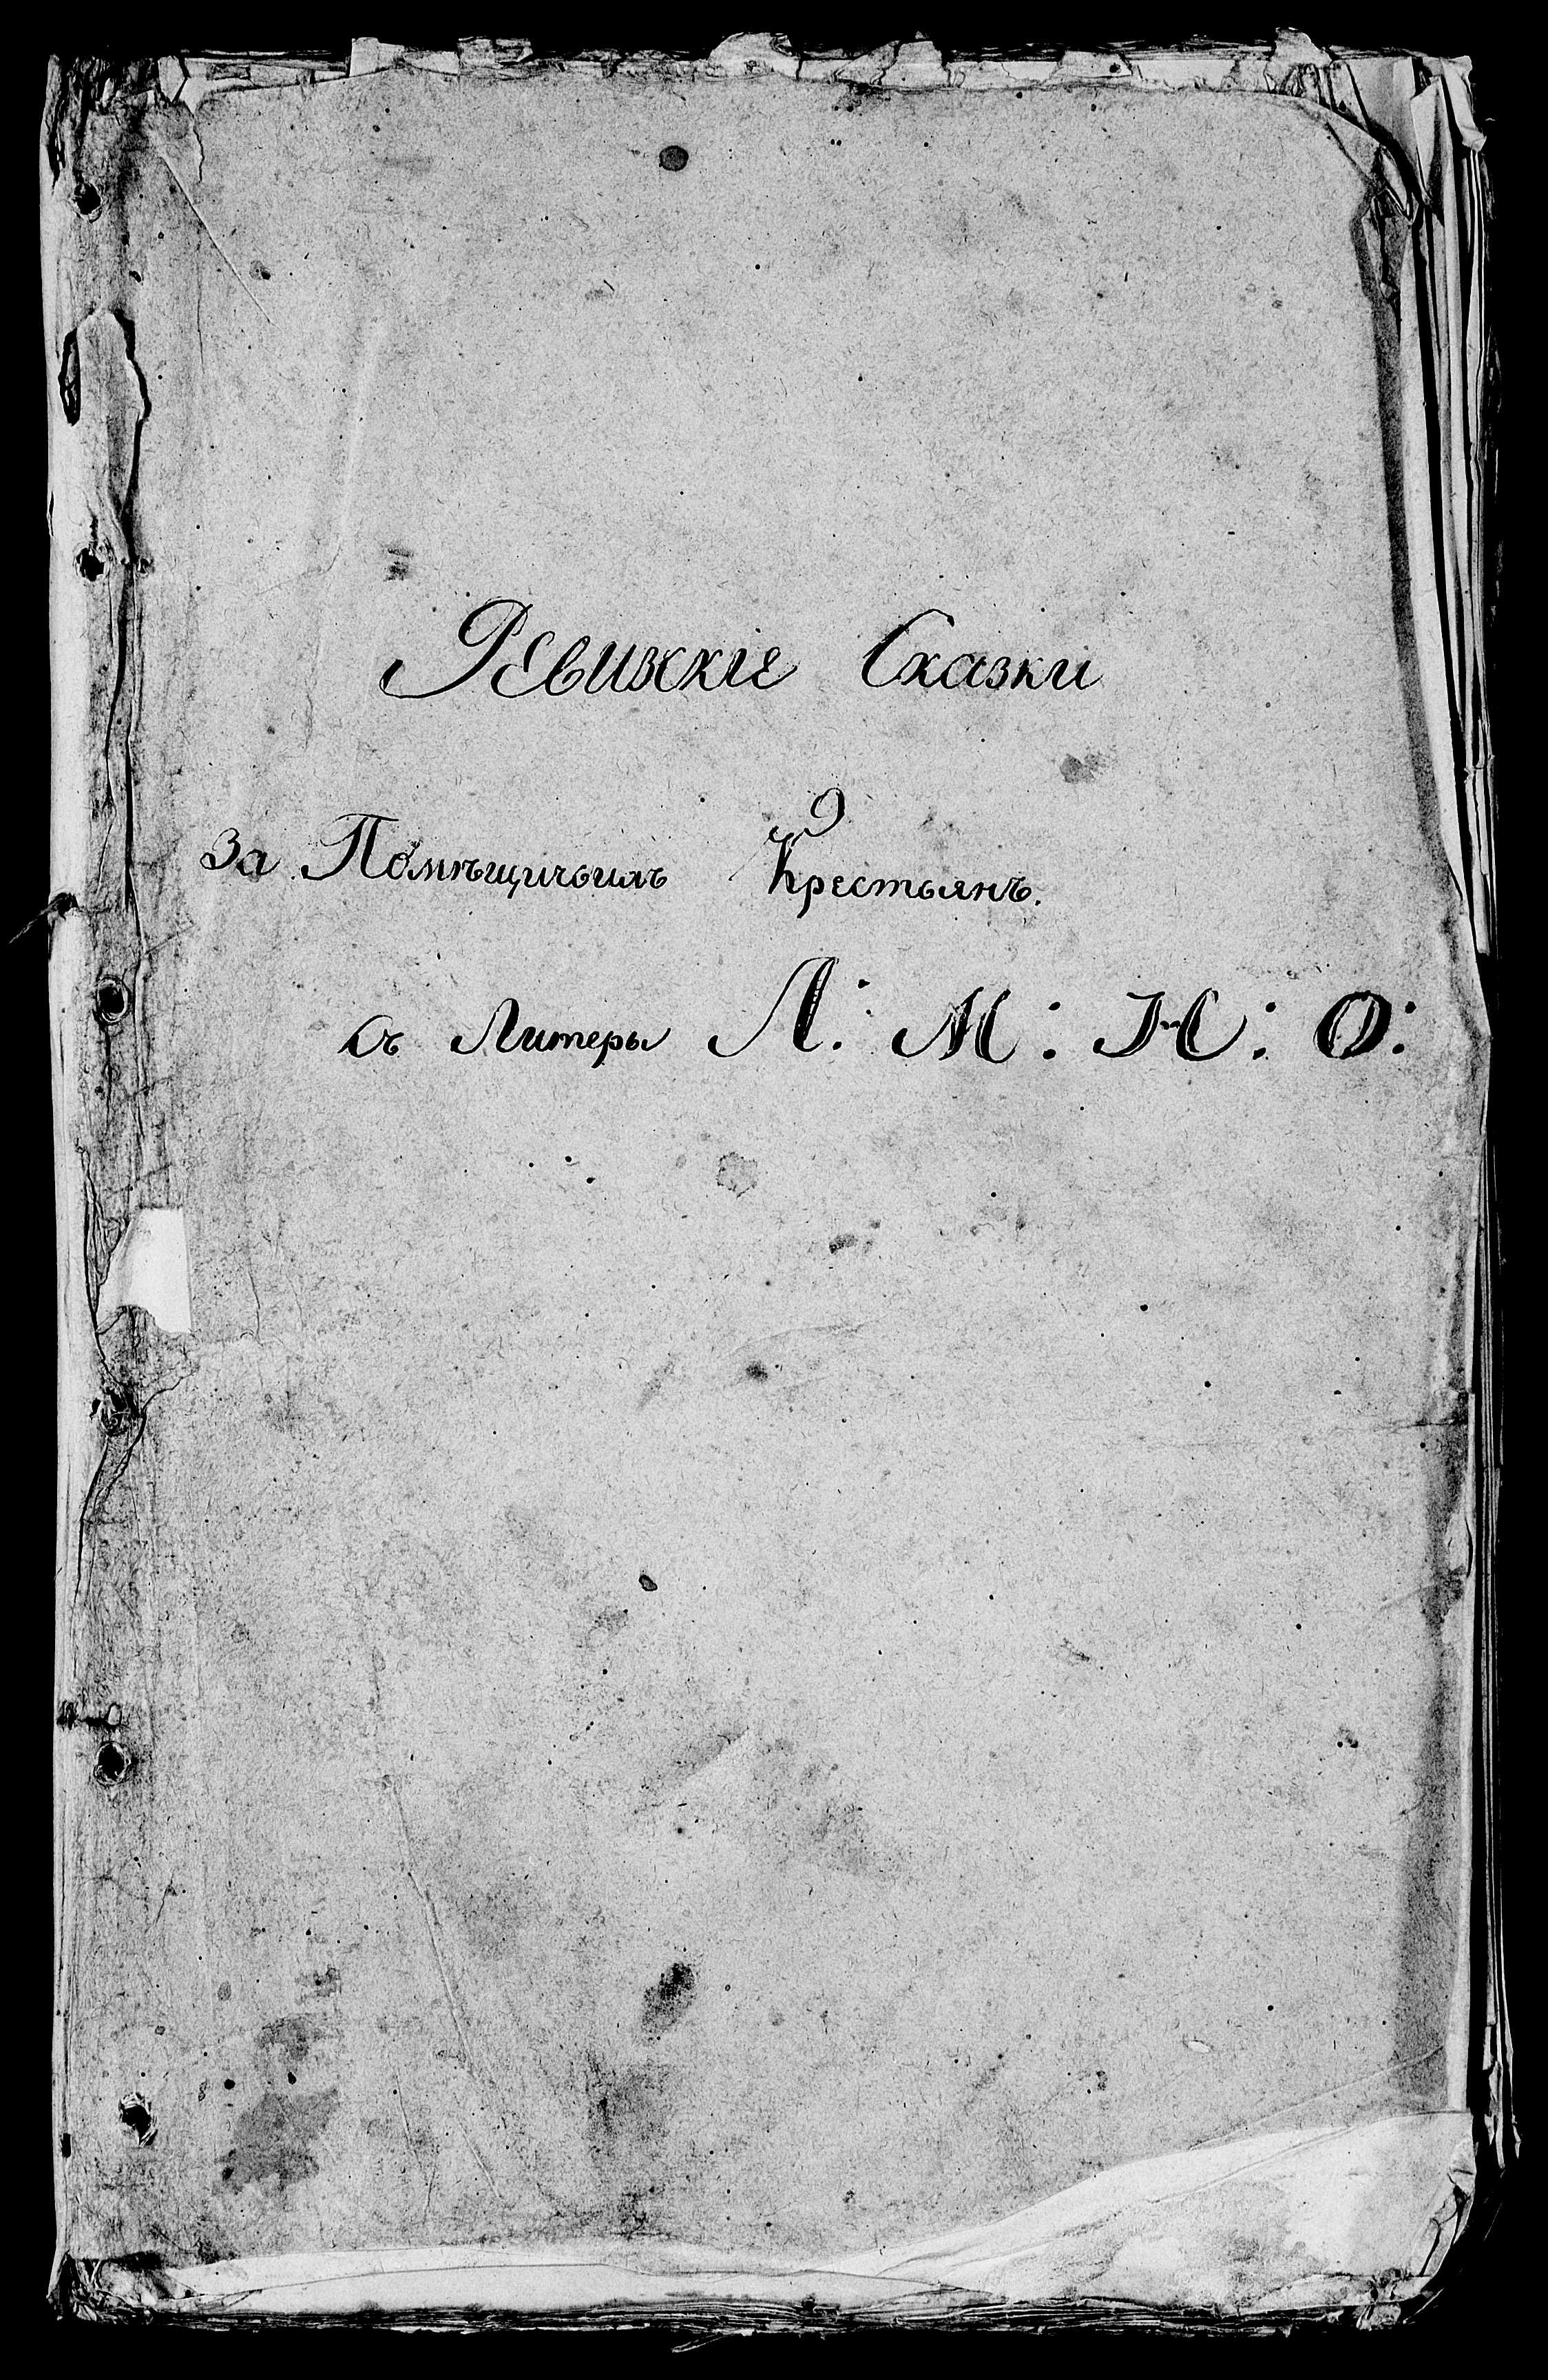 Ревизскіе Сказки
За Помѣщичьихъ Крестьянъ.
Съ Литеры Л: М: Н: О: